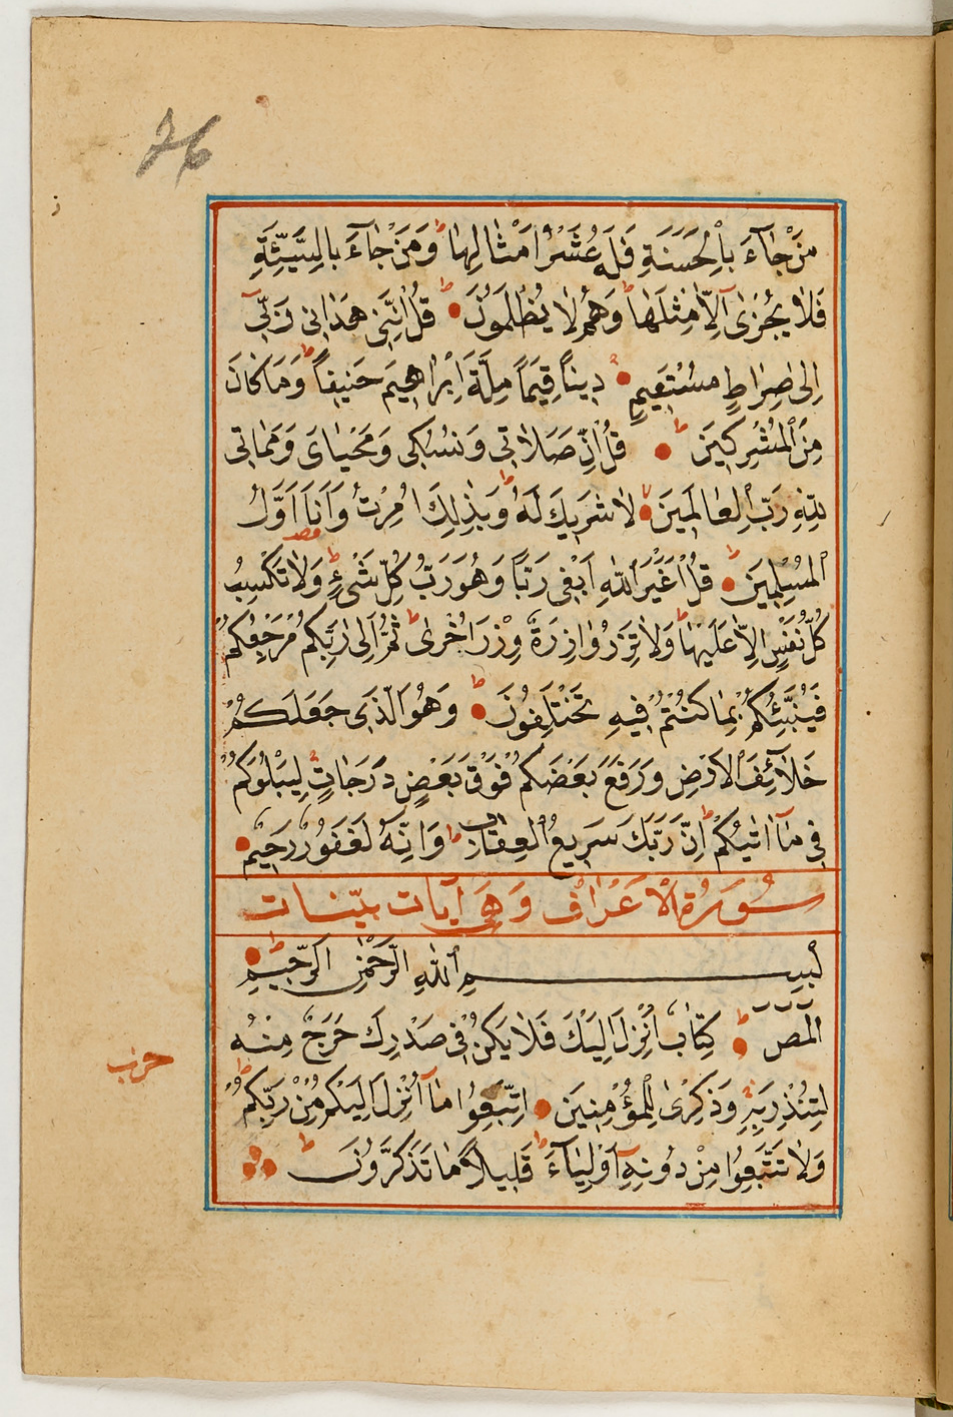 76
مَنْ جَآءَ بِالْحَسَنَةِ فَلَهُ عَشْرُ اَمْثَالِهَا ط وَمَنْ جَآءَ بِالسَّيِّئَةِ
فَلَا يُجْزٰى اِلَّا مِثْلَهَا ط وَهُمْ لَا يُظْلَمُونَ ط قُلْ اِنَّنِى هَدَانِى رَبِّى
اِلٰى صِرَاطٍ مُسْتَقِيمٍ دِينًا قِيَمًا مِلَّةَ اِبْرَاهِيمَ حَنِيفًا ط وَمَا كَانَ
مِنَ الْمُشْرِكِينَ ط قُلْ اِنَّ صَلَاتِى وَنُسُكِى وَمَحْيَاىَ وَمَمَاتِى
لِلّٰهِ رَبِّ الْعَالَمِينَ لا لَا شَرِيكَ لَهُ ط وَبِذٰلِكَ اُمِرْتُ وَاَنَا اَوَّلُ
الْمُسْلِمِينَ ط قُلْ اَغَيْرَ اللّٰهِ اَبْغِى رَبًّا وَهُوَ رَبُّ كُلِّ شَىْءٍ ط وَلَا تَكْسِبُ
كُلُّ نَفْسٍ اِلَّا عَلَيْهَا ط وَلَا تَزِرُ وَازِرَةٌ وِزْرَ اُخْرٰى ط ثُمَّ اِلٰى رَبِّكُمْ مَرْجِعُكُمْ
فَيُنَبِّئُكُمْ بِمَا كُنْتُمْ فِيهِ تَخْتَلِفُونَ ط وَهُوَ الَّذِى جَعَلَكُمْ
خَلَآئِفَ الْاَرْضِ وَرَفَعَ بَعْضَكُمْ فَوْقَ بَعْضٍ دَرَجَاتٍ لِيَبْلُوَكُمْ
فِى مَآ اٰتٰيكُمْ ط اِنَّ رَبَّكَ سَرِيعُ الْعِقَابِ ط وَاِنَّهُ لَغَفُورٌ رَحِيمٌ
سُورَةُ الْاَعْرَافِ وَهِىَ آيَات بَيِّنَات
بِسْمِ اللّٰهِ الرَّحْمٰنِ الرَّحِيمِ ط
الٓمٓصٓ ط كِتَابٌ اُنْزِلَ اِلَيْكَ فَلَا يَكُنْ فِى صَدْرِكَ حَرَجٌ مِنْهُ
لِتُنْذِرَ بِهِ وَذِكْرٰى لِلْمُؤْمِنِينَ اِتَّبِعُوا مَآ اُنْزِلَ اِلَيْكُمْ مِنْ رَبِّكُمْ ط
وَلَا تَتَّبِعُوا مِنْ دُونِهِ آوْلِيَآءَ ط قَلِيلًا مَا تَذَكَّرُونَ ط
حزب